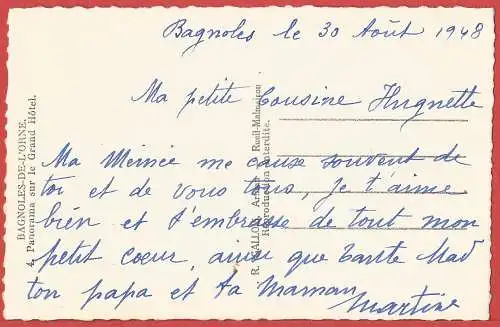 Bagnoles le 30 Août 1948
Ma petite Cousine Huguette
Ma Mémée me cause souvent de
toi et de vous tous, Je t'aime
bien et t'embrasse de tout mon
petit cœur, ainsi que tante Mad
ton papa et ta Maman
Martine
BAGNOLES-DE-L'ORNE.
4. Panorama sur le Grand Hôtel.
R. Rueil-Malmaison
Reproduction interdite.